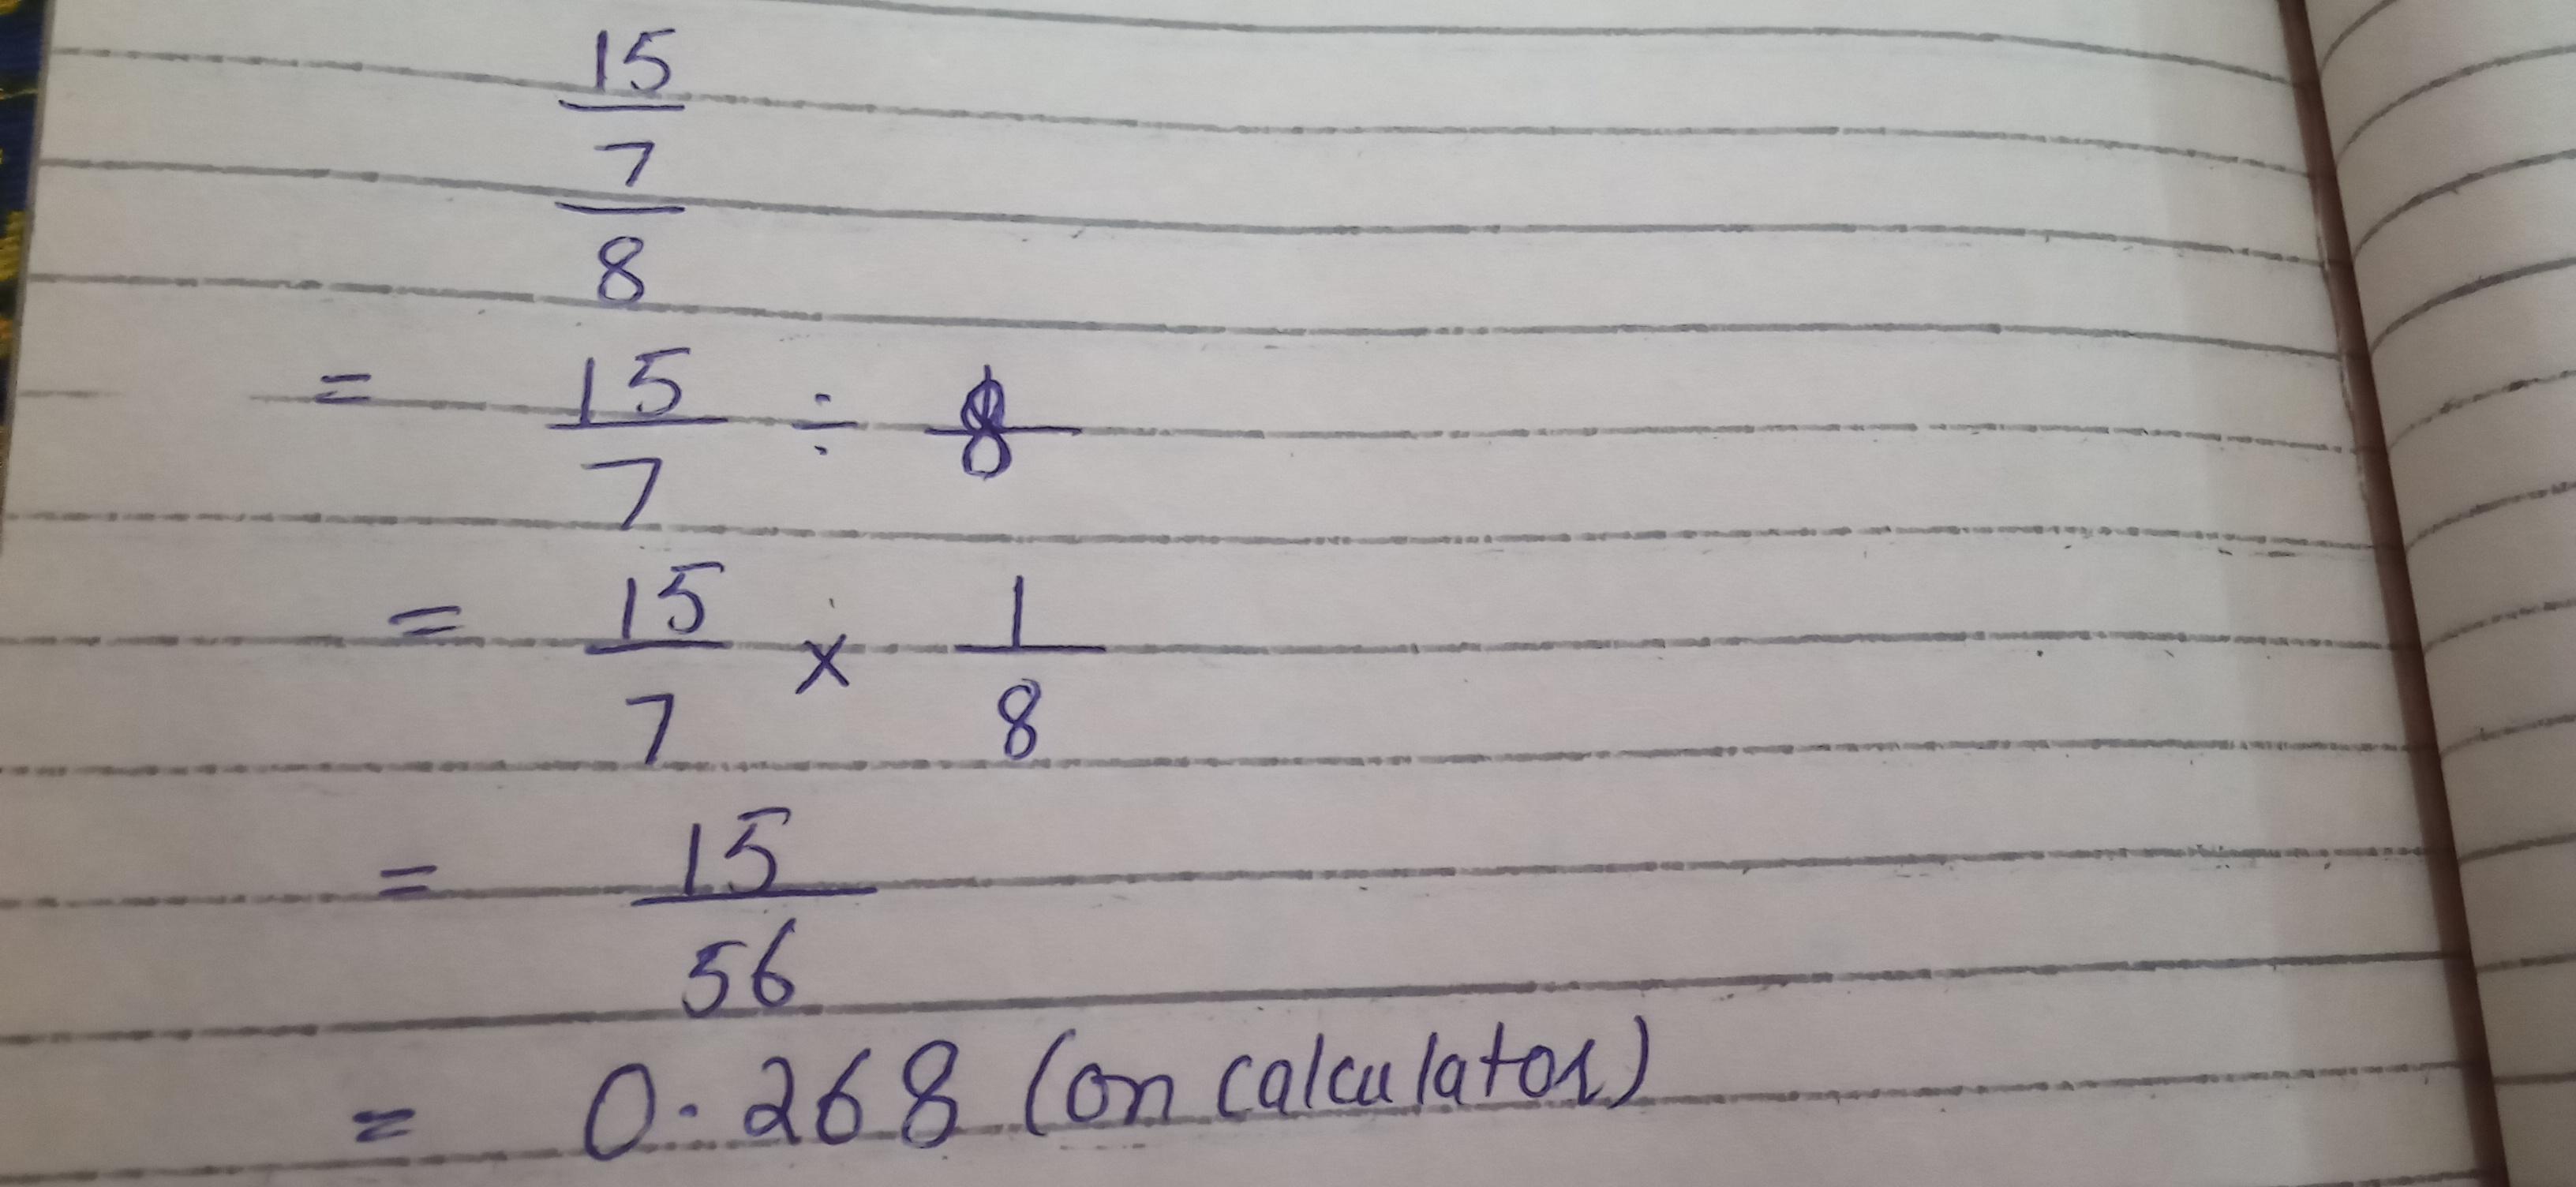 15
7
8
= 15/7 ÷ 8
= 15/7 × 1/8
= 15/56
= 0.268 (on calculator)